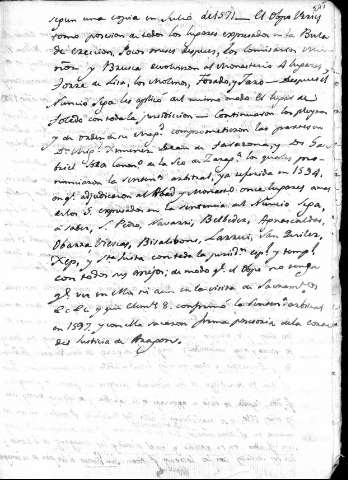 segun una copia en Julio de 1571 — El Obpo
tomo posesion de todos los lugares expresados en la Bula
de ereccion. Pocos meses despues, los Comisarios
y devolvieron al Monasterio 4 lugares,
Torre de Lisa, los Molinos, Forado, y Toro — Despues el
Nuncio Sega les aplicó del mismo modo el lugar de
Toledo con toda la jurisdicion — Continuaron los pleytos
y de orden de su Mag.d comprometieron las partes en
Dean de Tarazona, y D.n Ga-
briel Canon.o de la Seo de Zarag.a los quales pro-
nunciaron la sentens.a arbitral, ya referida en 1594.
en q.e adjudicaron al Abad y Monasterio once lugares a mas
de los 5. expresados en la sentencia del Nuncio Sega,
a saber, S. Pedro, Navarri, Belbeder, Aguascaldas,
Obarra Biescas, Bisalibons, Larruri, San
y S.ta Justa con toda la jurisd.n esp.l y temp.l
con todos sus anejos; de modo q.e el Obpo no tenga
q.e ver en ella ni aun en la visita de Sacram.tos
&c &c y que Clem.te 8. confirmó la senten.a arbitral
en 1597. y con ella sacaron firma posesoria de la Corte
del Justicia de Aragon.